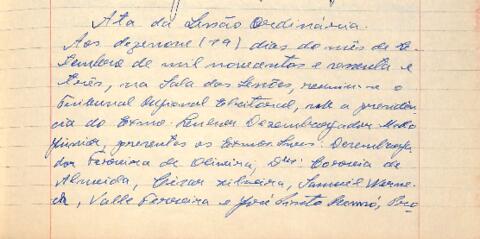 Ata da Sessão Ordinária.
Aos dezenove (19) dias do mês de Se-
tembro de mil novecentos e sessenta e
três, na Sala das Sessões, reuniu-se o
Tribunal Regional Eleitoral, sob a presidên-
cia do Exmo. Senhor Desembargador
Júnior, presentes os Exmos. Snrs. Desembarga-
dor Ferreira de Oliveira, Drs. Correia de
Almeida, Cezar Silveira, Samuel
, Valle Ferreira e José